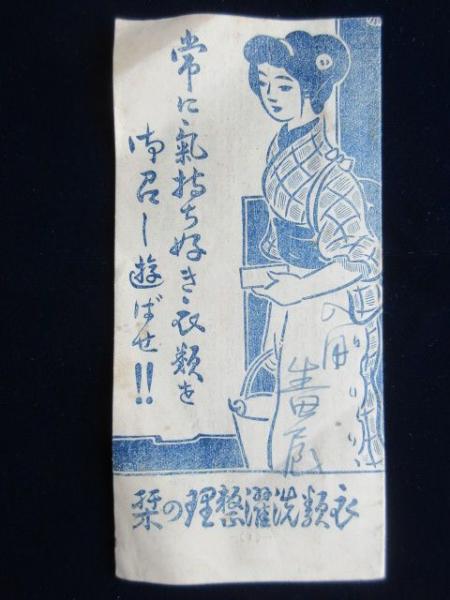 常に氣持ち好き衣類を
御召し遊ばせ!!
衣類洗濯整理の栞